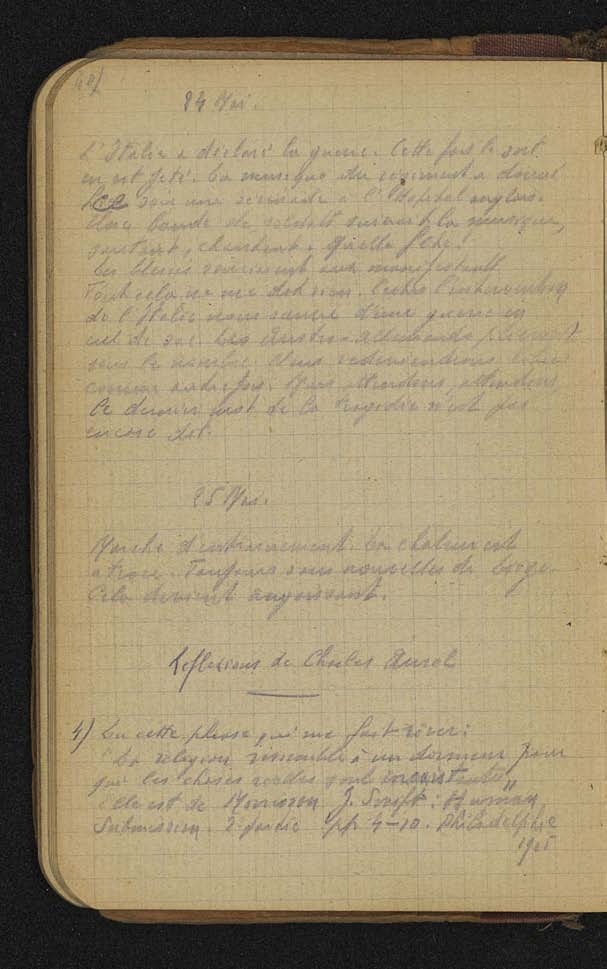 40/
24 Mai.
L'Italie a déclaré la guerre. Cette fois le sort
en est jeté. La musique du régiment a donné
ce soir une sérénade à l'Hopital anglais.
bande de soldats suivant la musique,
sautant, chantant, quelle fête!
Les blessés aux manifestants
Tout cela ne me dit rien. l'intervention
de l'Italie nous sauve d'une guerre en
cul de sac. Les Austro-allemands
sous le nombre. Nous redeviendrons
comme autrefois. Mais attendons, attendons
le dernier mot de la tragédie n'est pas
encore dit.
25 Mai.
Marche d'entrainement. La chaleur est
atroce. Toujours sans nouvelles de Liège.
Cela devient angoissant.
Réflexions de Charles Aurel
4) Lu cette phrase qui me fait rêver:
"La religion ressemble à un dormeur pour
qui les choses réelles sont inexistantes"
elle est de Morrison J. Swift: "Human
Submission. 2 partie pp. 4-10. Philadelphie
1905